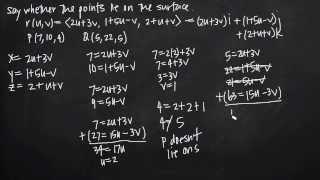 say whether the points lie on the surface.
r(u,v) = <2u+3v, 1+5u-v, 2+u+v> = (2u+3v)i + (1+5u-v)j
+ (2+u+v)k
P(7,10,4) Q(5,22,5)
x = 2u+3v
y = 1+5u-v
z = 2+u+v
7 = 2u+3v
10 = 1+5u-v
7 = 2u+3v
9 = 5u-v
7 = 2u+3v
+(27 = 15u-3v)
34 = 17u
u = 2
7 = 2(2)+3v
7 = 4+3v
3 = 3v
v = 1
4 = 2+2+1
4 ≠ 5
P doesn't
lie on S
5 = 2u+3v
22 = 1+5u-v
21 = 5u-v
+(63 = 15u-3v)